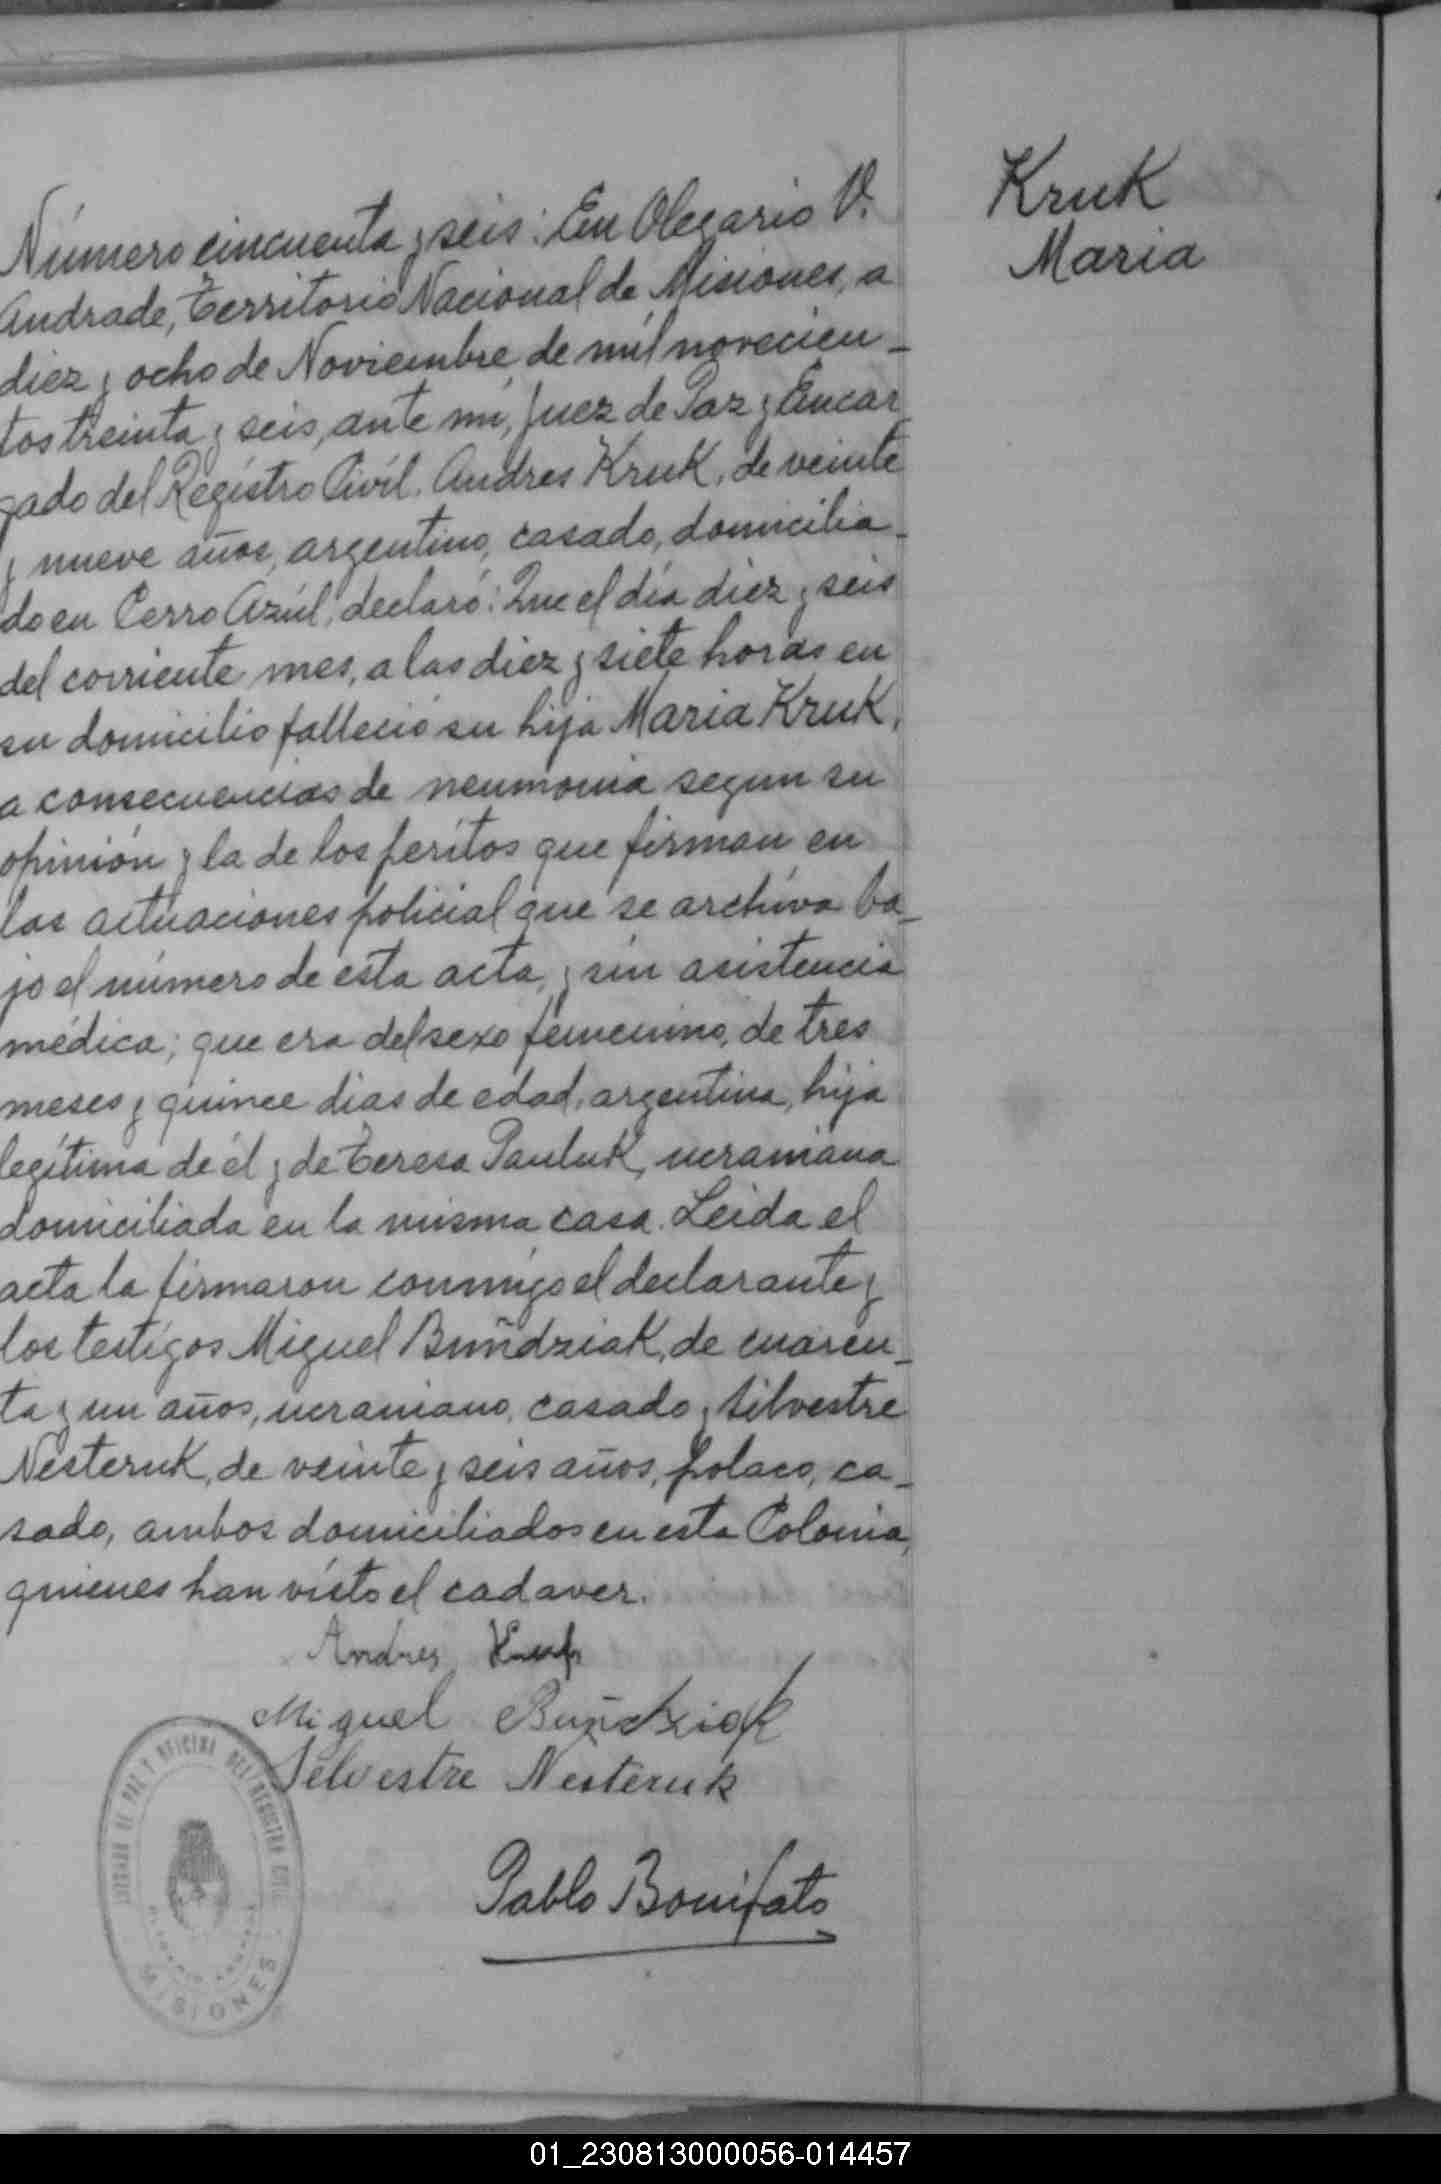 Kruk
Maria
Número cincuenta y seis: En Olegario V.
Andrade, Territorio Nacional de Misiones, a
diez y ocho de Noviembre de mil novecien-
tos treinta y seis, ante mí, Juez de Paz y Encar
gado del Registro Civil, Andres Kruk, de veinte
y nueve años, argentino, casado, domicilia-
do en Cerro Azúl, declaró: Que el día diez y seis
del corriente mes, a las diez y siete horas en
su domicilio falleció su hija Maria Kruk,
a consecuencias de neumonia segun su
opinión y la de los peritos que firman en
las actuaciones policial que se archiva ba-
jo el número de esta acta, y sin asistencia
médica; que era del sexo femenino, de tres
meses y quince dias de edad, argentina, hija
legítima de él y de Teresa Pauluk, ucraniana
domiciliada en la misma casa. Leida el
acta la firmaron conmigo el declarante y
los testigos Miguel Buñdziak, de cuaren-
ta y un años, ucraniano, casado y Silvestre
Nesteruk, de veinte y seis años, polaco, ca-
sado, ambos domiciliados en esta Colonia,
quienes han visto el cadaver.
Andres Kruk
Miguel Buñdziak
Silvestre Nesteruk
Pablo Bonifato
JUZGADO DE PAZ Y OFICINA DEL REGISTRO CIVIL
MISIONES
01_230813000056-014457